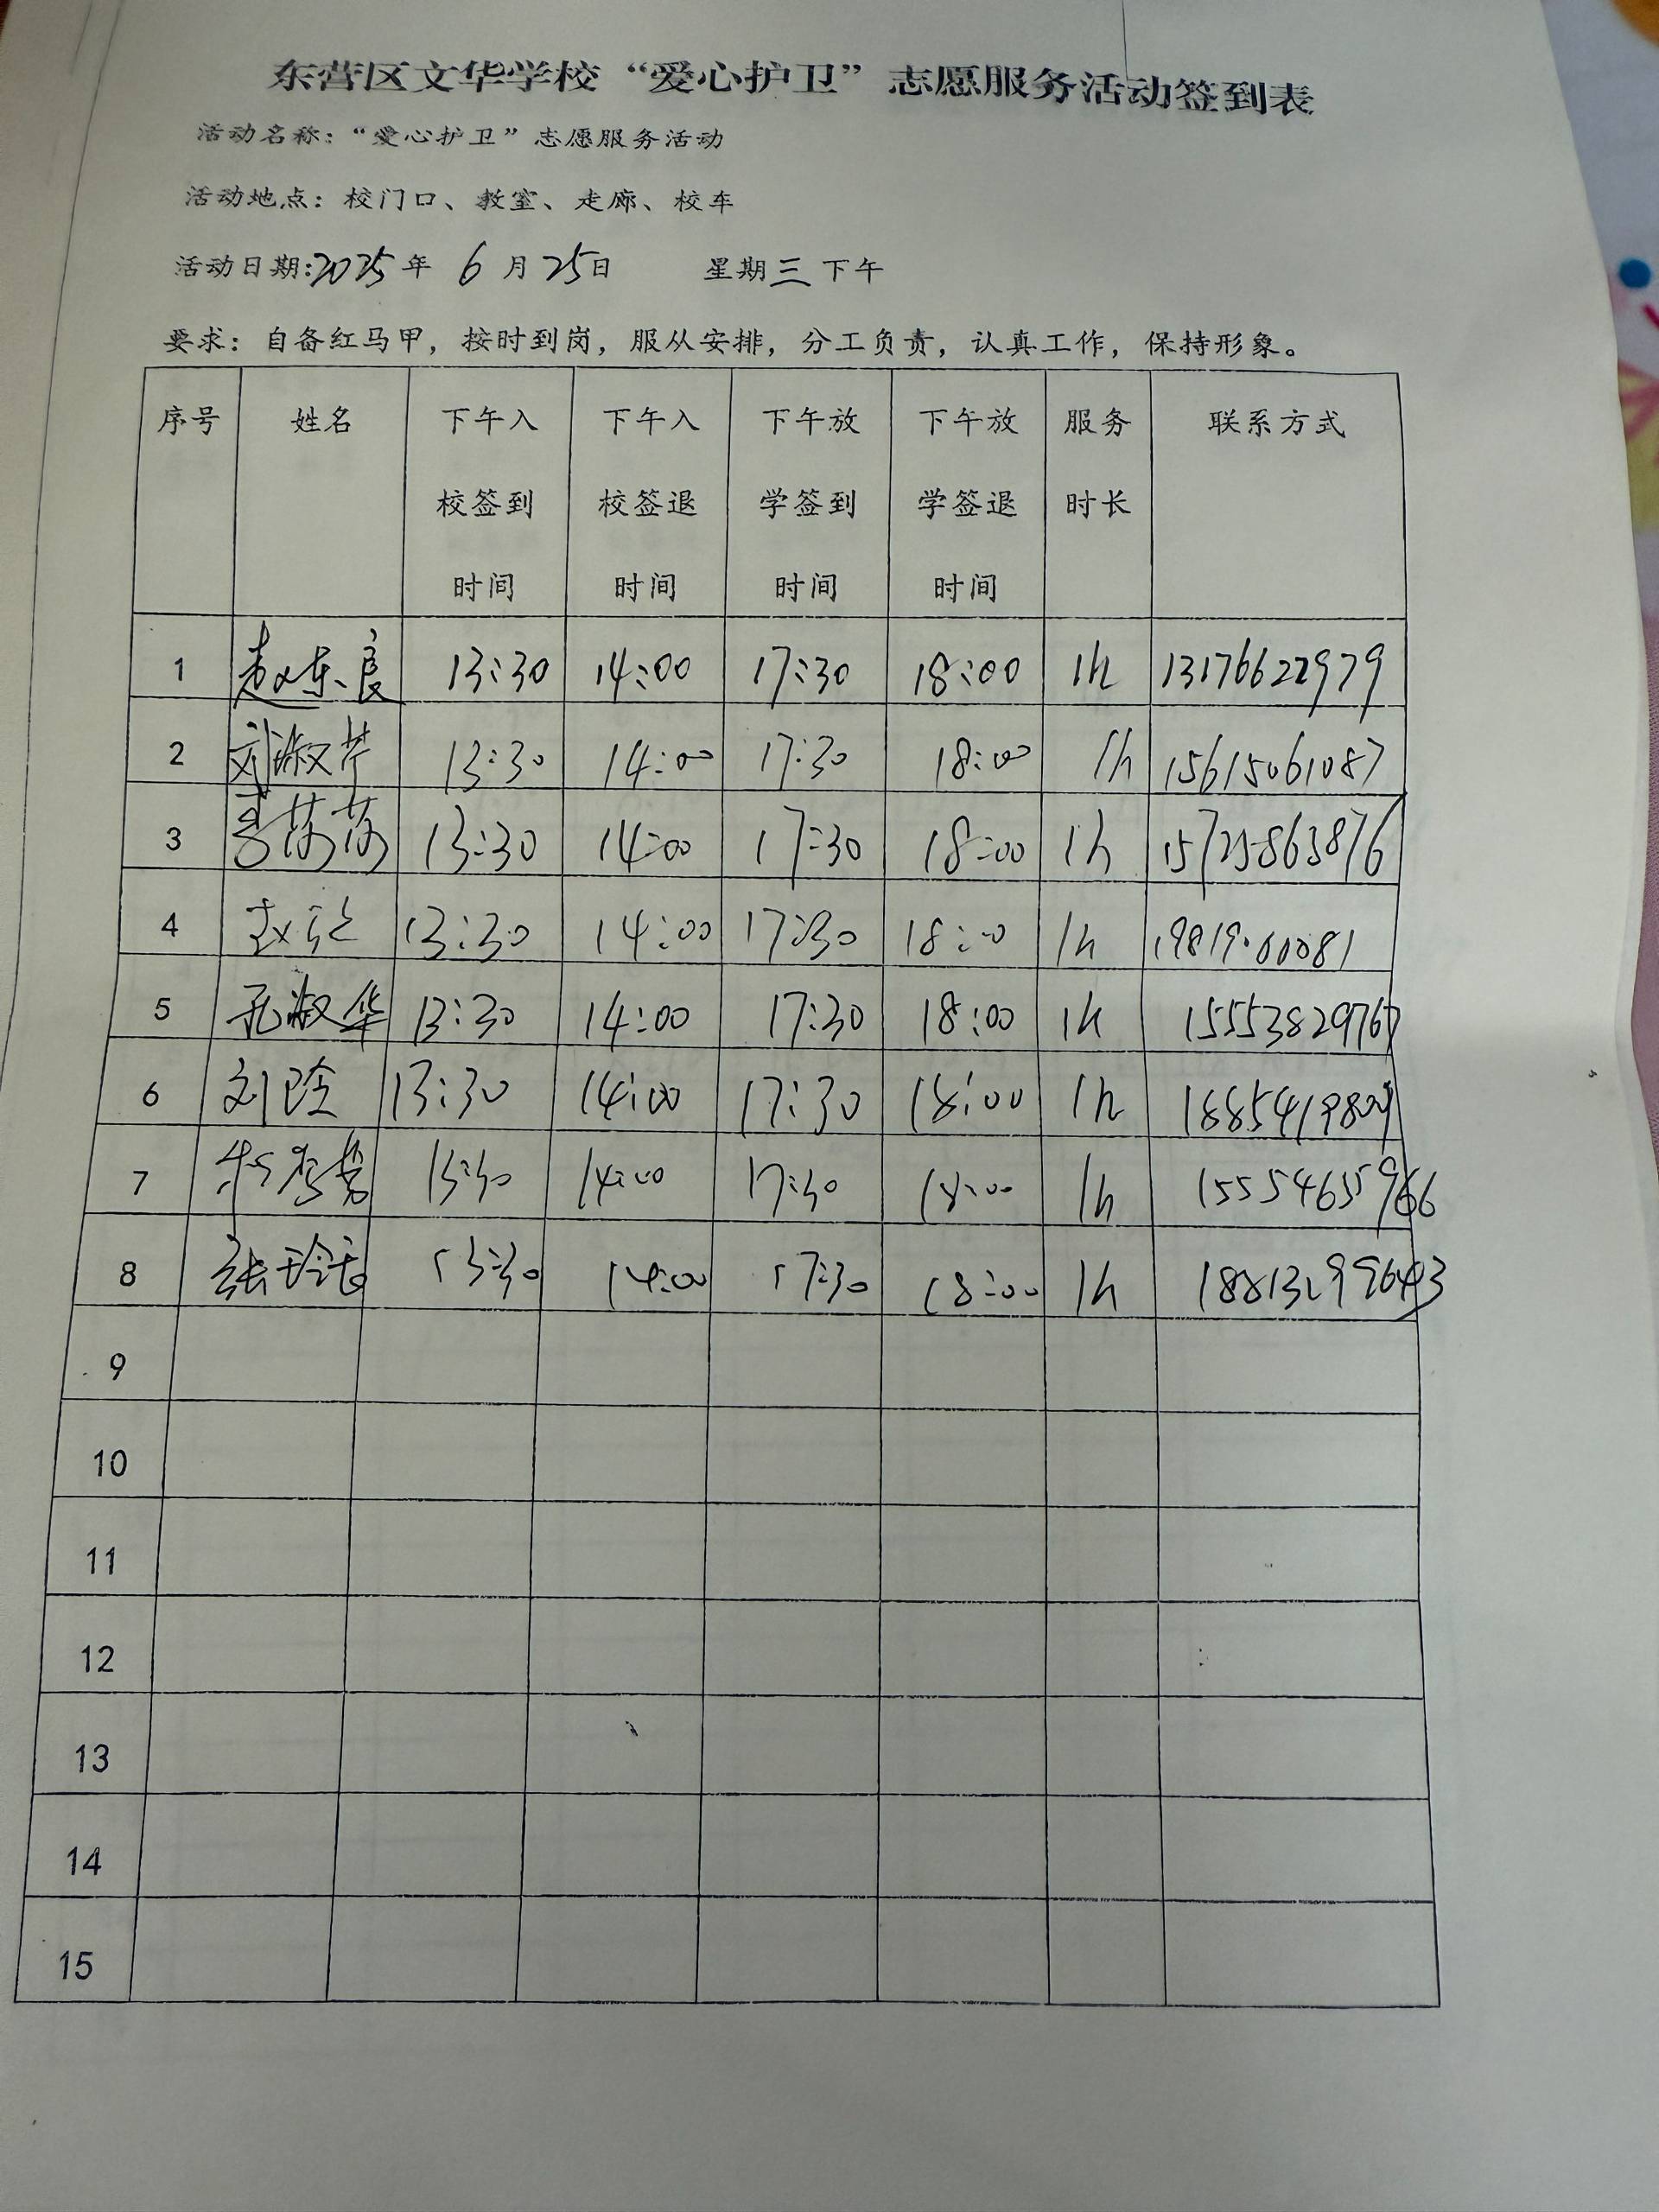 东营区文华学校“爱心护卫”志愿服务活动签到表
活动名称：“爱心护卫”志愿服务活动
活动地点：校门口、教室、走廊、校车
活动日期:2025年 6月25日 星期三下午
要求：自备红马甲，按时到岗，服从安排，分工负责，认真工作，保持形象。
序号 姓名 下午入校签到时间 下午入校签退时间 下午放学签到时间 下午放学签退时间 服务时长 联系方式
1 赵东良 13:30 14:00 17:30 18:00 1h 13176622979
2 刘淑芹 13:30 14:00 17:30 18:00 1h 15615061087
3 13:30 14:00 17:30 18:00 1h 15725863876
4 13:30 14:00 17:30 18:00 1h
5 孔淑华 13:30 14:00 17:30 18:00 1h 15553829767
6 13:30 14:00 17:30 18:00 1h
7 13:30 14:00 17:30 18:00 1h 15554655966
8 13:30 14:00 17:30 18:00 1h
9
10
11
12
13
14
15